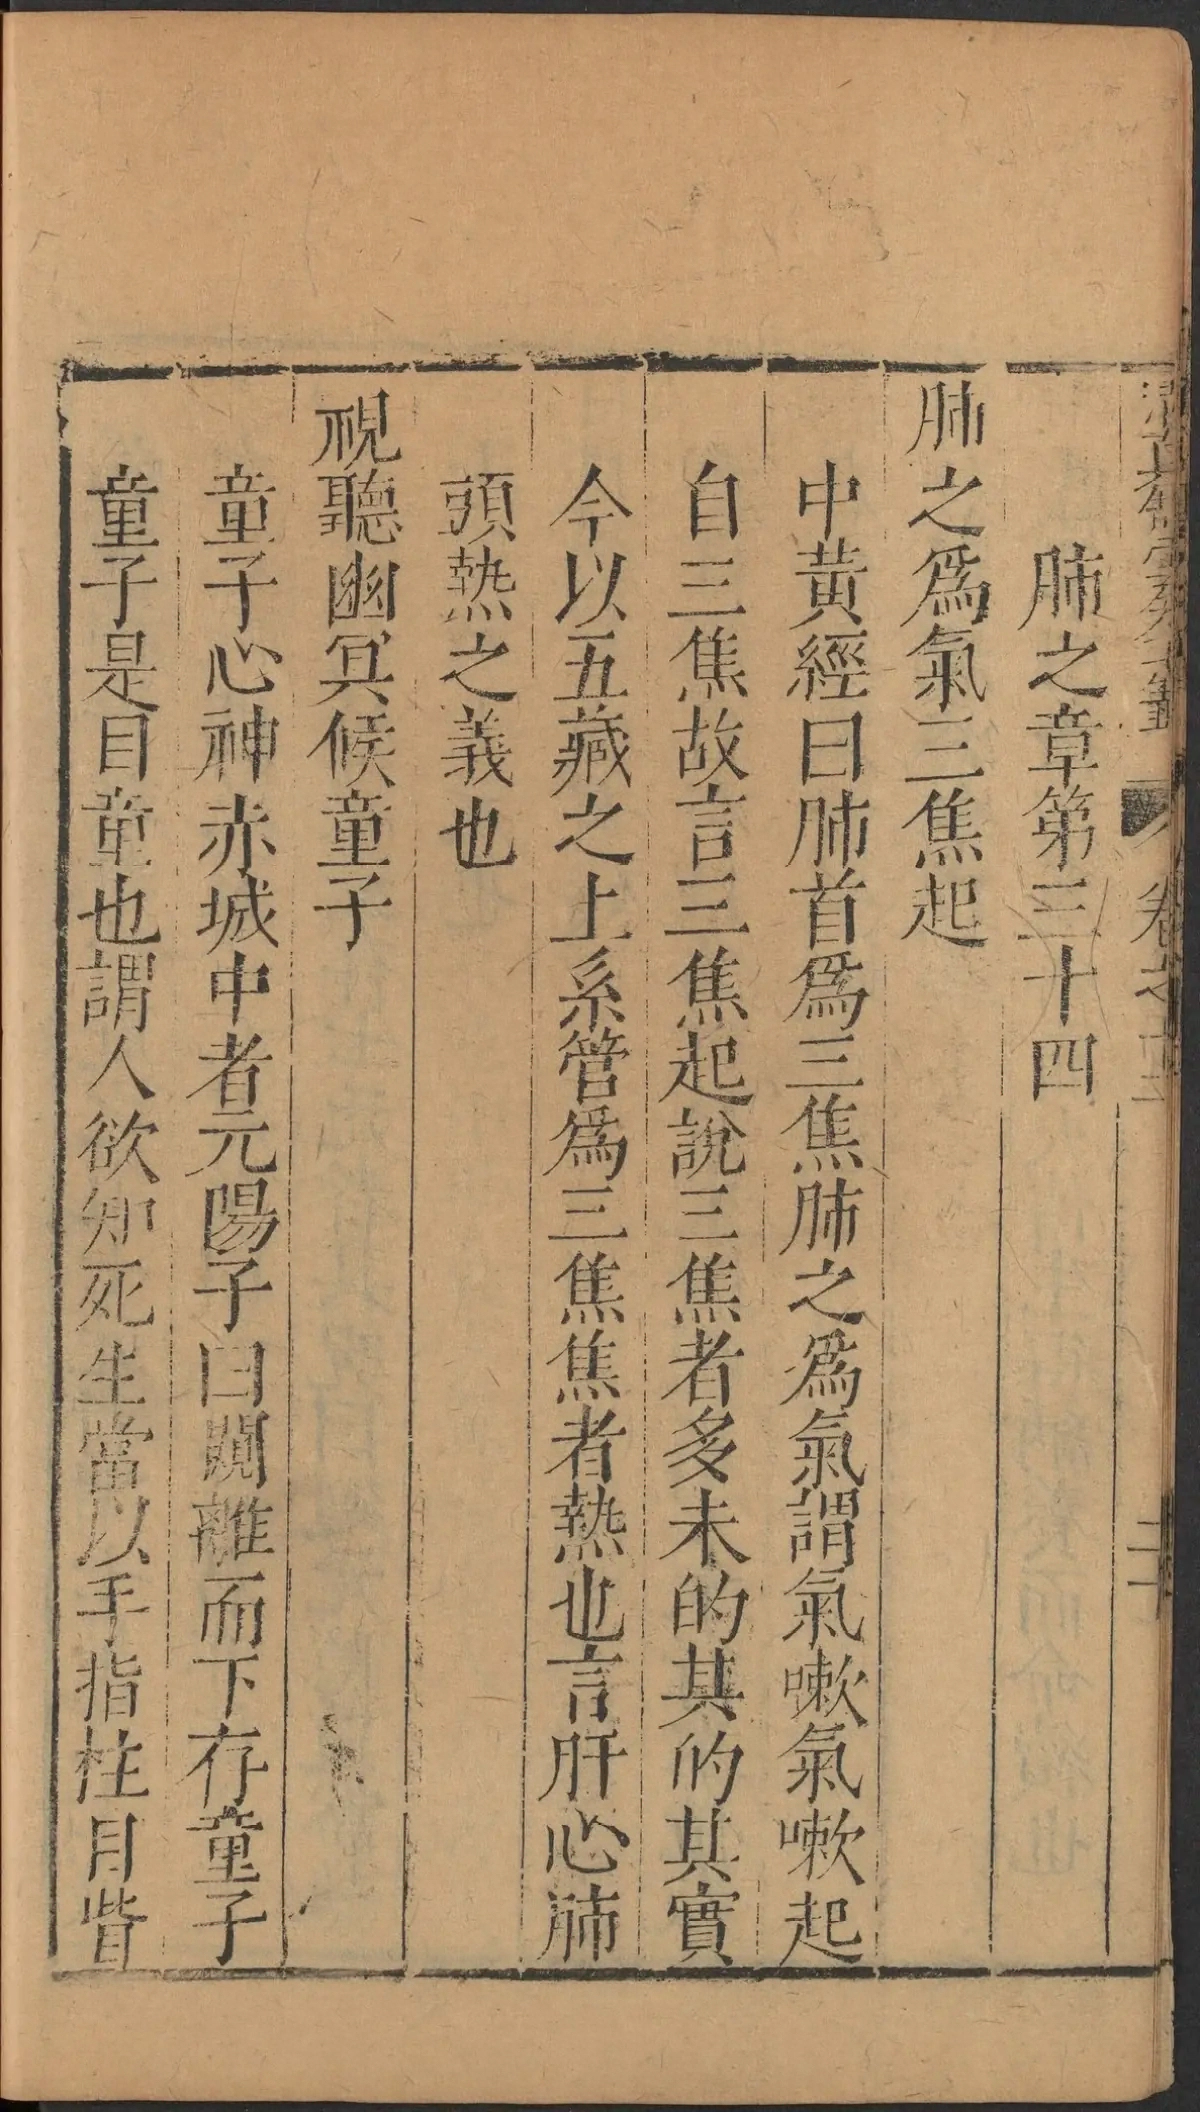 肺之章第三十四
肺之爲氣三焦起
中黃經曰肺首爲三焦肺之爲氣謂氣嗽氣嗽起
自三焦故言三焦起說三焦者多未的其的其實
今以五藏之上系管爲三焦焦者熱也言肝心肺
頭熱之義也
視聽幽冥候童子
童子心神赤城中者元陽子曰閞離而下存童子
童子是目童也謂人欲知死生當以手指柱目眥
卷之十二